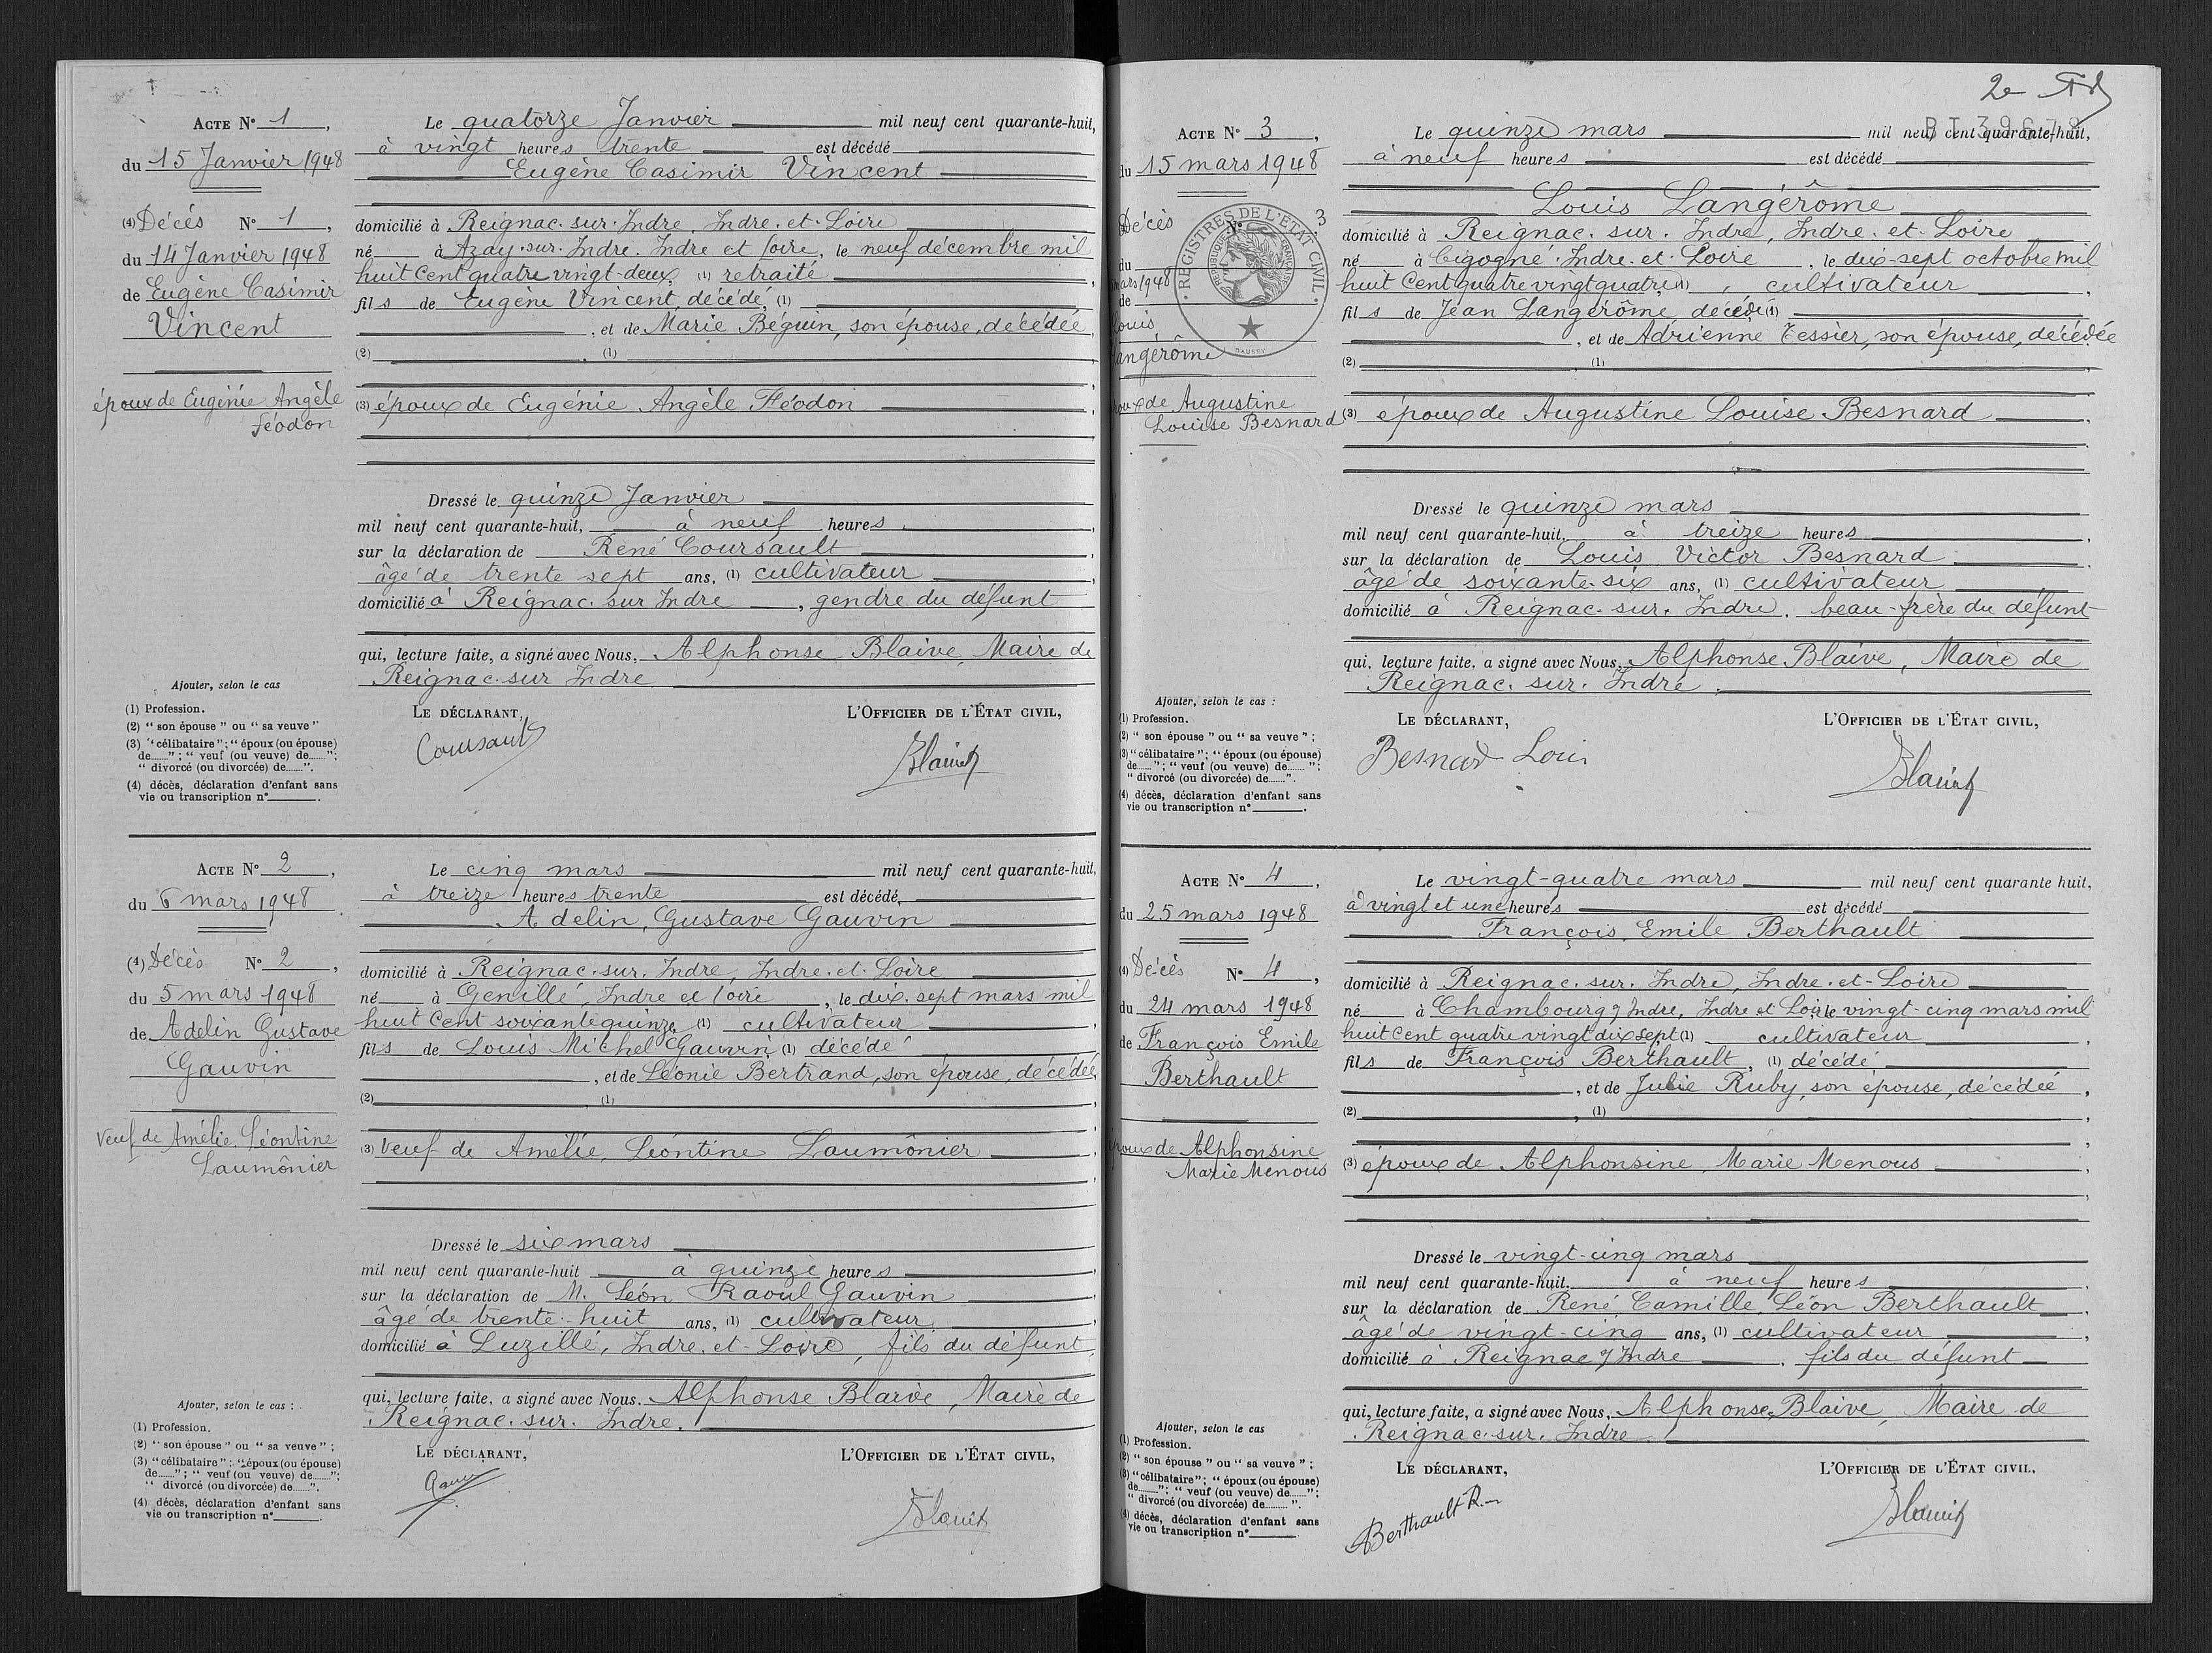 Acte N° 1,
du 15 Janvier 1948
(4) Décès N° 1,
du 14 Janvier 1948
de Eugène Casimir
Vincent
époux de Eugénie Angèle
Féodon
Le quatorze Janvier mil neuf cent quarante-huit,
à vingt heures trente est décédé
Eugène Casimir Vincent
domicilié à Reignac-sur-Indre, Indre-et-Loire
né à Azay-sur-Indre, Indre et Loire, le neuf décembre mil
huit cent quatre vingt-deux, (1) retraité
fils de Eugène Vincent, décédé, (1)
, et de Marie Béguin, son épouse, décédée
(2) , (1)
(3) époux de Eugénie Angèle Féodon
Dressé le quinze Janvier
mil neuf cent quarante-huit, à neuf heures
sur la déclaration de René Coursault
âgé de trente sept ans, (1) cultivateur
domicilié à Reignac-sur Indre, gendre du défunt
qui, lecture faite, a signé avec Nous, Alphonse Blaive, Maire de
Reignac-sur Indre
Le déclarant, L'Officier de l'État civil,
Coursault
Ajouter, selon le cas
(1) Profession.
(2) " son épouse " ou " sa veuve "
(3) " célibataire " ; " époux (ou épouse)
de...... " ; " veuf (ou veuve) de...... " ;
" divorcé (ou divorcée) de...... ".
(4) décès, déclaration d'enfant sans
vie ou transcription n° .
Acte N° 2,
du 6 mars 1948
(4) Décès N° 2,
du 5 mars 1948
de Adelin Gustave
Gauvin
Veuf de Amélie Léontine
Laumônier
Le cinq mars mil neuf cent quarante-huit,
à treize heures trente est décédé,
Adelin, Gustave Gauvin
domicilié à Reignac-sur-Indre, Indre-et-Loire
né à Genillé, Indre et Loire, le dix-sept mars mil
huit cent soixante quinze, (1) cultivateur
fils de Louis Michel Gauvin, (1) décédé
, et de Léonie Bertrand, son épouse, décédée
(2) , (1)
(3) Veuf de Amélie, Léontine Laumônier
Dressé le six mars
mil neuf cent quarante-huit à quinze heures
sur la déclaration de M. Léon Raoul Gauvin
âgé de trente-huit ans, (1) cultivateur
domicilié à Luzillé, Indre-et-Loire, fils du défunt,
qui, lecture faite, a signé avec Nous, Alphonse Blaive, Maire de
Reignac-sur-Indre.
Le déclarant, L'Officier de l'État civil,
Ajouter, selon le cas :
(1) Profession.
(2) " son épouse " ou " sa veuve " ;
(3) " célibataire " ; " époux (ou épouse)
de...... " ; " veuf (ou veuve) de...... " ;
" divorcé (ou divorcée) de...... ".
(4) décès, déclaration d'enfant sans
vie ou transcription n° .
2e
BT 39678
Acte N° 3,
du 15 mars 1948
Décès N° 3
du
mars 1948
de
Louis
Langérôme
REGISTRES DE L'ÉTAT CIVIL
RÉPUBLIQUE FRANÇAISE
DAUSSY
époux de Augustine
Louise Besnard
Le quinze mars mil neuf cent quarante-huit,
à neuf heures est décédé
Louis Langérôme
domicilié à Reignac-sur-Indre, Indre-et-Loire
né à Cigogné, Indre-et-Loire, le dix-sept octobre mil
huit cent quatre vingt quatre (1), cultivateur
fils de Jean Langérôme, décédé (1)
, et de Adrienne Tessier, son épouse, décédée
(2) (1)
(3) époux de Augustine Louise Besnard
Dressé le quinze mars
mil neuf cent quarante-huit, à treize heures
sur la déclaration de Louis Victor Besnard
âgé de soixante-six ans, (1) cultivateur
domicilié à Reignac-sur-Indre, beau-frère du défunt
qui, lecture faite, a signé avec Nous, Alphonse Blaive, Maire de
Reignac-sur-Indre.
Le déclarant, L'Officier de l'État civil,
Besnard Loui
Ajouter, selon le cas :
(1) Profession.
(2) " son épouse " ou " sa veuve " ;
(3) " célibataire " ; " époux (ou épouse)
de...... " ; " veuf (ou veuve) de...... " ;
" divorcé (ou divorcée) de...... ".
(4) décès, déclaration d'enfant sans
vie ou transcription n° .
Acte N° 4,
du 25 mars 1948
(4) Décès N° 4,
du 24 mars 1948
de François Emile
Berthault
époux de Alphonsine
Marie Menous
Le vingt-quatre mars mil neuf cent quarante huit,
à vingt et une heures est décédé
François Emile Berthault
domicilié à Reignac-sur-Indre, Indre-et-Loire
né à Chambourg s/ Indre, Indre et Loire le vingt-cinq mars mil
huit cent quatre vingt dix sept (1) cultivateur
fils de François Berthault, (1) décédé
, et de Julie Ruby, son épouse, décédée,
(2) , (1)
(3) époux de Alphonsine, Marie Menous
Dressé le vingt-cinq mars
mil neuf cent quarante-huit, à neuf heures
sur la déclaration de René, Camille, Léon Berthault
âgé de vingt-cinq ans, (1) cultivateur
domicilié à Reignac s/ Indre, fils du défunt
qui, lecture faite, a signé avec Nous, Alphonse Blaive, Maire de
Reignac-sur-Indre
Le déclarant, L'Officier de l'État civil,
Berthault R.
Ajouter, selon le cas
(1) Profession.
(2) " son épouse " ou " sa veuve " ;
(3) " célibataire " ; " époux (ou épouse)
de...... " ; " veuf (ou veuve) de...... " ;
" divorcé (ou divorcée) de...... ".
(4) décès, déclaration d'enfant sans
vie ou transcription n°